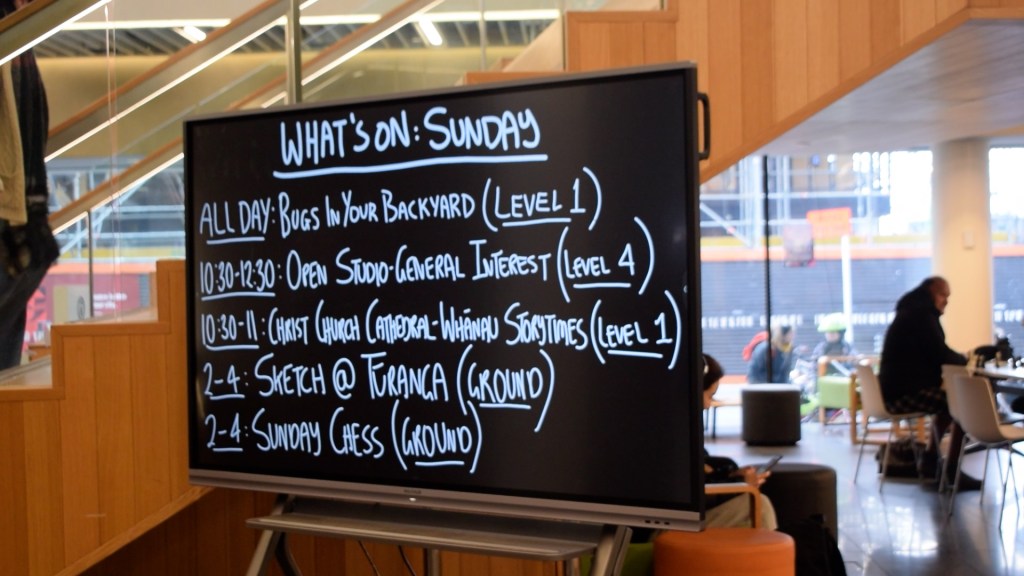 WHAT'S ON: SUNDAY
ALL DAY: BUGS IN YOUR BACKYARD (LEVEL 1)
10:30-12:30: OPEN STUDIO-GENERAL INTEREST (LEVEL 4)
10:30-11: CHRIST CHURCH CATHEDRAL-WHĀNAU STORYTIMES (LEVEL 1)
2-4: SKETCH @ TURANGA (GROUND)
2-4: SUNDAY CHESS (GROUND)